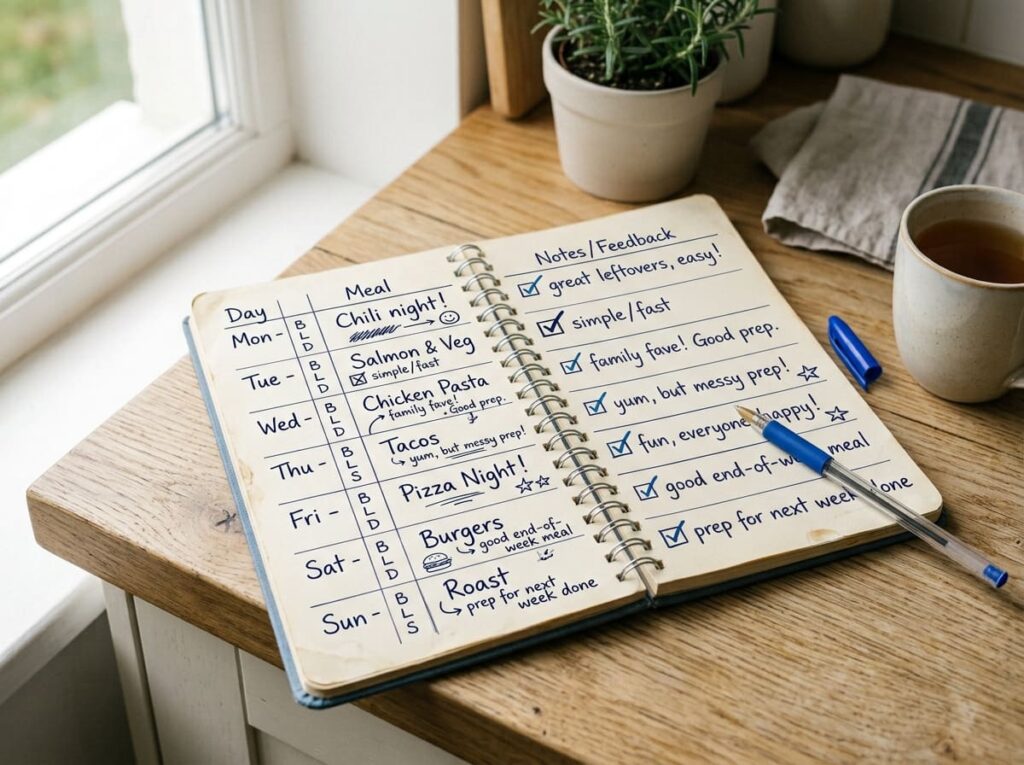 Day
Meal
Mon -
B
L
D
Chili night!
Tue -
B
L
D
Salmon & Veg
simple/fast
Wed -
B
L
D
Chicken Pasta
family fave!
· Good prep.
Thu -
B
L
S
Tacos
yum, but messy prep!
Fri -
B
L
D
Pizza Night!
Sat -
B
L
D
Burgers
good end-of-
week meal
Sun -
B
L
S
Roast
prep for next
week done
Notes/Feedback
great leftovers, easy!
simple/fast
family fave! Good prep.
yum, but messy prep!
fun, everyone happy!
good end-of-week meal
prep for next week done